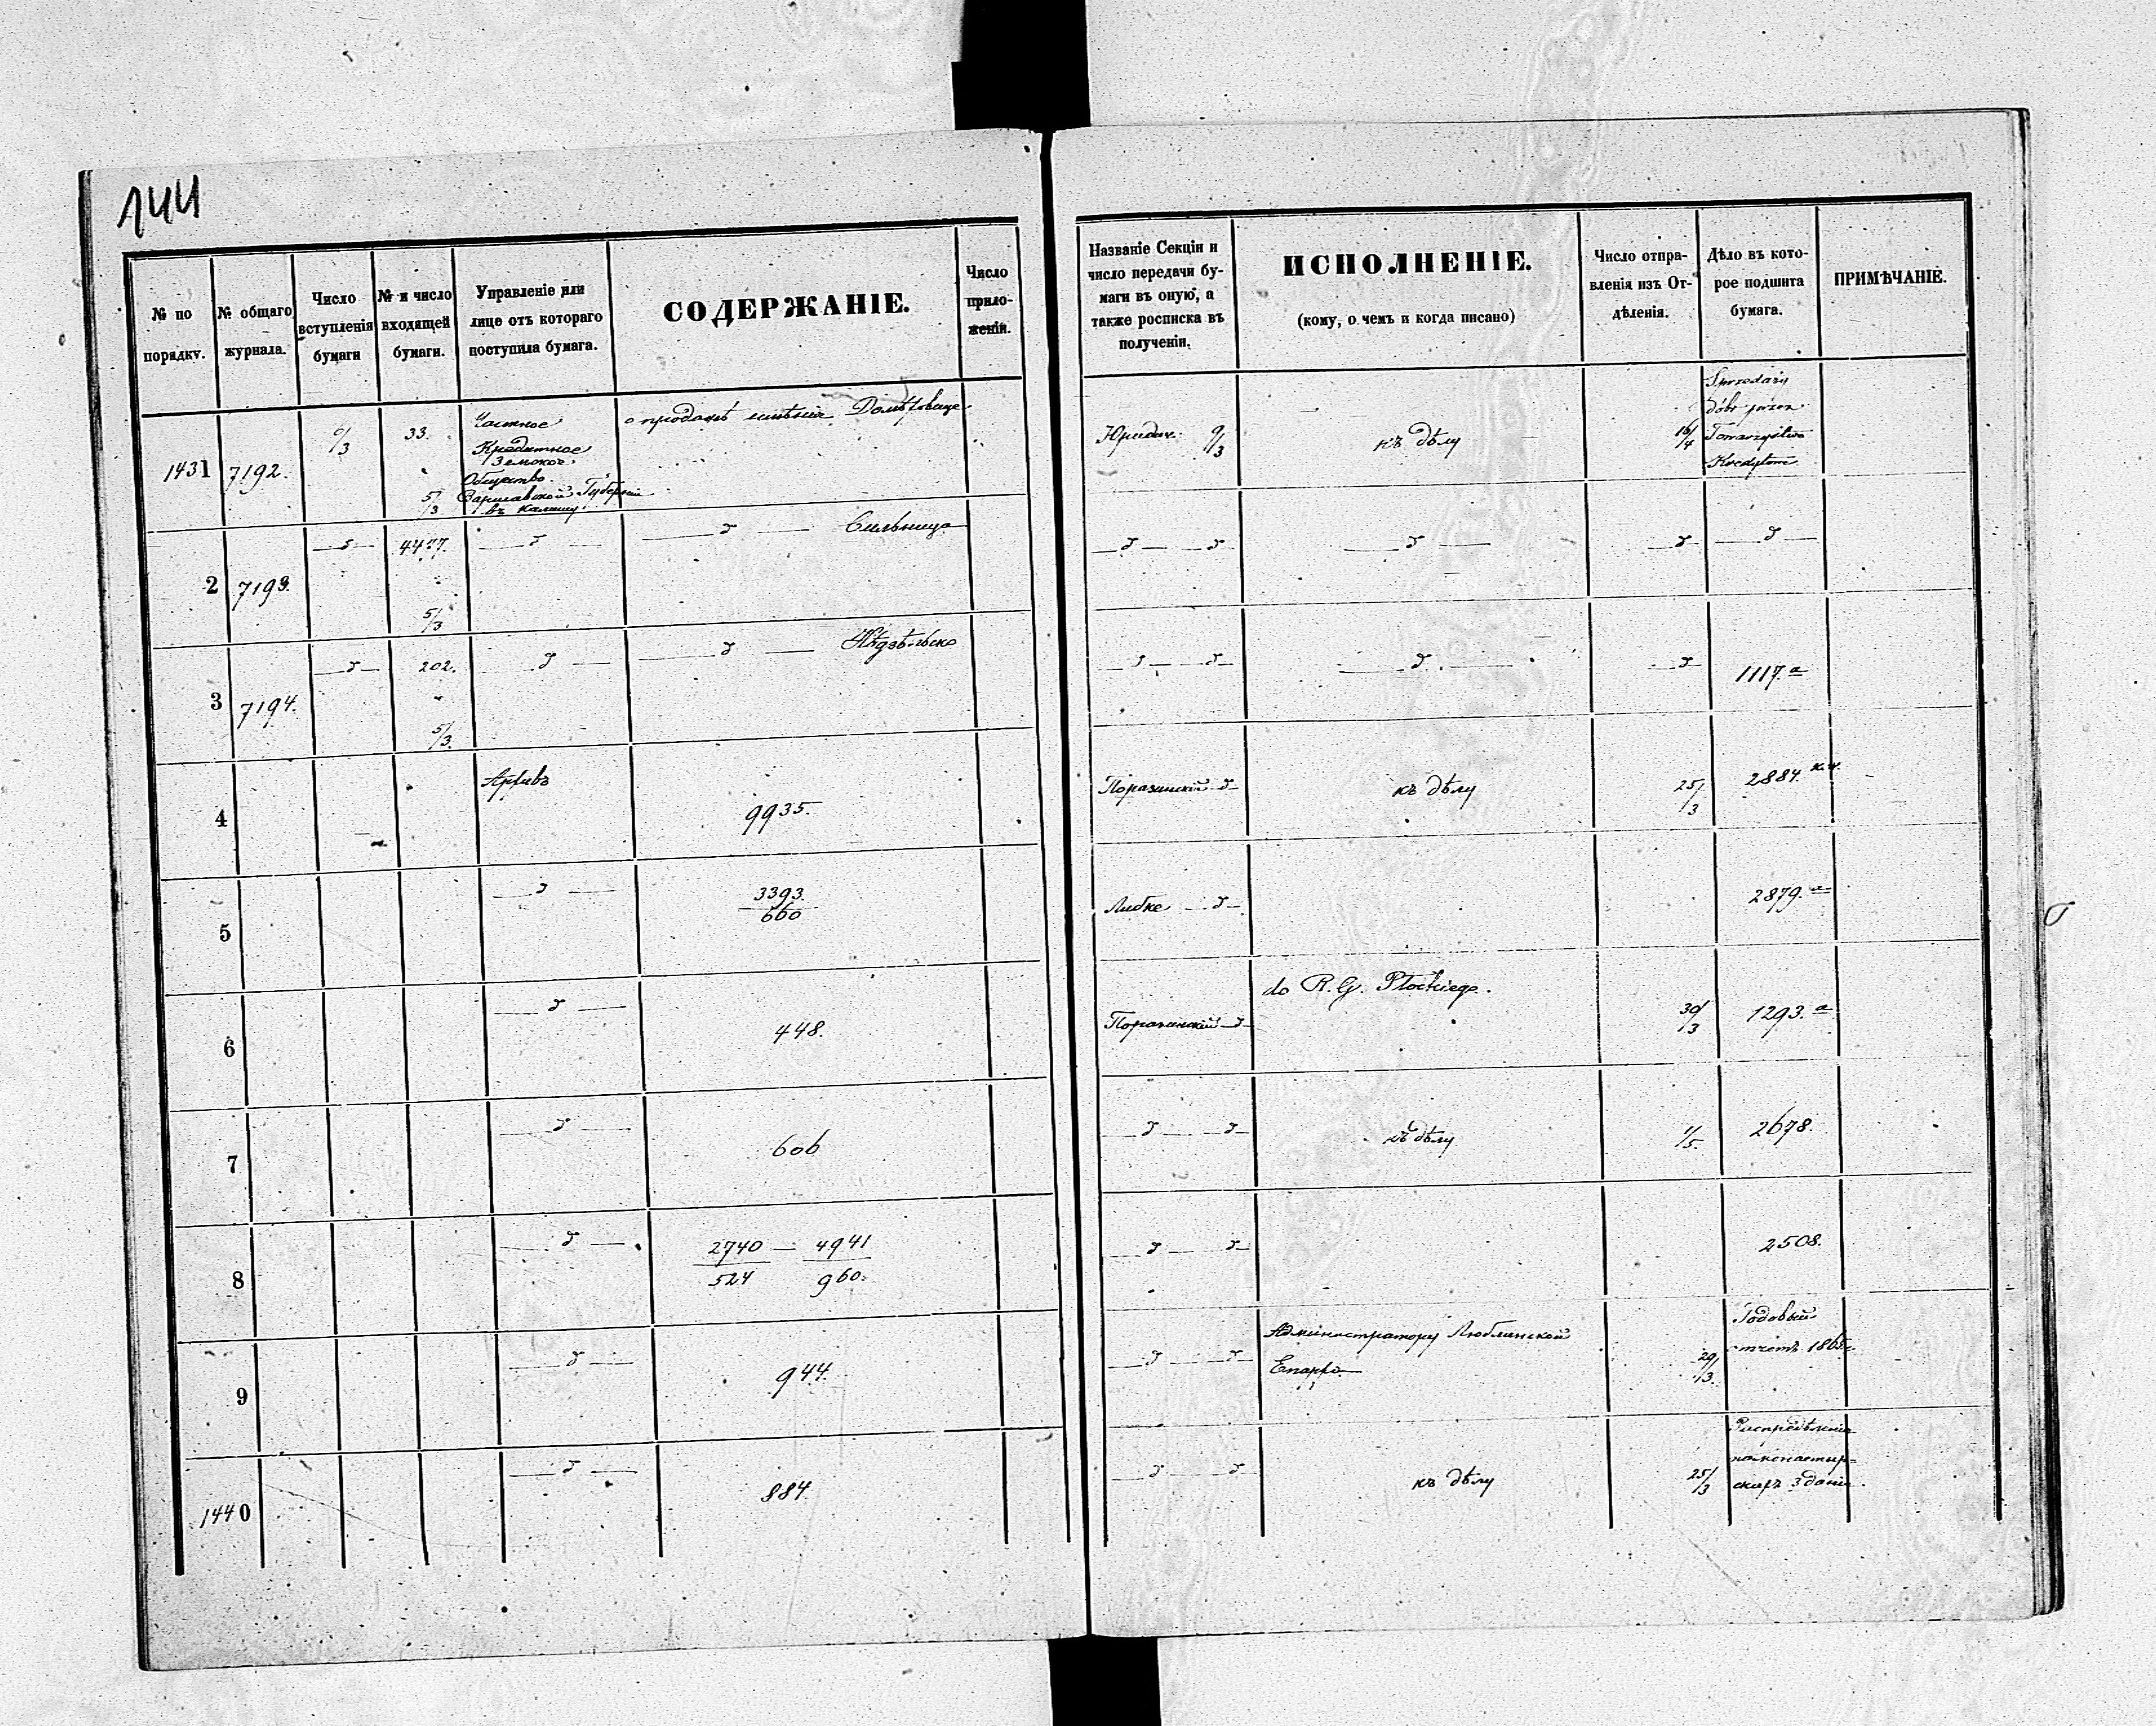 144
№ по порядку.
№ общаго журнала.
Число вступленія бумаги
№ и число входящей бумаги.
Управленіе или лице отъ котораго поступила бумага.
СОДЕРЖАНІЕ.
Число приложеній.
Названіе Секціи и
число передачи бу-
маги въ оную, а
также росписка въ
полученіи.
ИСПОЛНЕНІЕ.
(кому, о чемъ и когда писано)
Число отпра-
вленія изъ От-
дѣленія.
Дѣло въ кото-
рое подшита
бумага.
ПРИМѢЧАНІЕ.
1431 7192. 9/3 33. 5/3
Частное
Кредитное
Земское
Общество
Варшавской Губерніи
въ Калишу
о продажѣ имѣнія
Юридич. 9/3 къ дѣлу 16/4
Sprzedaży
dóbr przez
Towarzystwo
Kredytowe
2 7193. —д— 4477. 5/3 —д— —д—
—д— —д— —д— —д— —д—
3 7194. —д— 202. 5/3 —д— —д—
—д— —д— —д— —д— 1117. a
4 Архивъ 9935. —д— къ дѣлу 25/3 2884.
5 —д— 3393./660 Либке —д— 2879. a
6 —д— 448. —д— do R. G. Płockiego. 30/3 1293. a
7 —д— 606 —д— —д— къ дѣлу 1/5. 2678.
8 —д— 2740/524 — 4941/960. —д— —д— 2508.
9 —д— 944. —д— —д—
Администратору Люблинской
Епархіи
29/3.
Годовый
отчетъ 1865
1440 —д— 884 —д— —д— къ дѣлу 25/3
Распредѣленіе
помонастыр-
скихъ зданій.